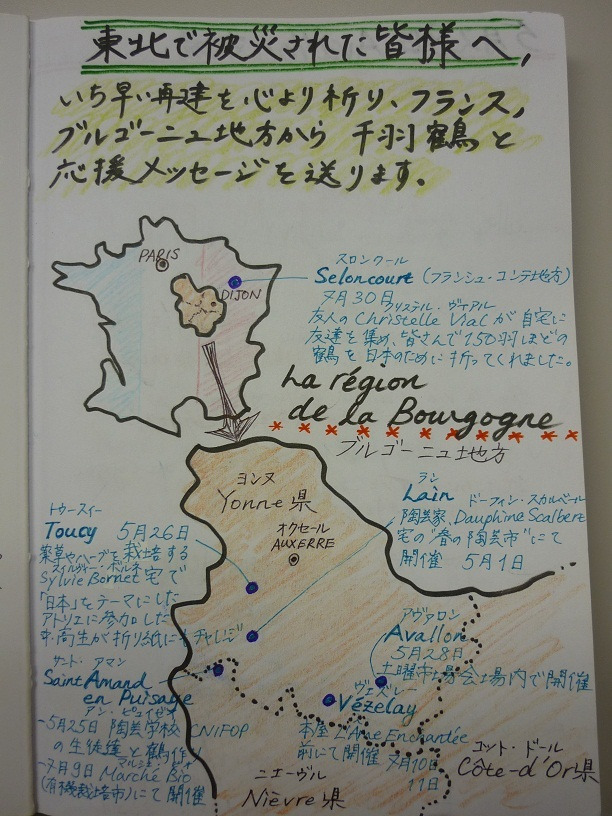 東北で被災された皆様へ,
いち早い再建を心より祈り、フランス,
ブルゴーニュ地方から 千羽鶴と
応援メッセージを送ります。
PARIS
DIJON
スロンクール
Seloncourt (フランシュ・コンテ地方)
7月30日
クリステル・ヴィアル
友人のChristelle Vialが自宅に
友達を集め、皆さんで150羽ほどの
鶴を日本のために折ってくれました。
La région
de la Bourgogne
ブルゴーニュ地方
ヨンヌ
Yonne県
オクセール
AUXERRE
ラン
Lain ドーフィン・スカルベール
陶芸家、Dauphine Scalbert
宅の"春の陶芸市"にて
開催 5月1日
トゥースィー
Toucy 5月26日
薬草やハーブを栽培する
スィルヴィー・ボルネ
Sylvie Bornet宅で
「日本」をテーマにした
アトリエに参加した
中・高生が折り紙にチャレンジ
アヴァロン
Avallon
5月28日
土曜市場会場内で開催
サント・アマン
Saint Amand
en Puisaye
アン・ピュイゼイ
-5月25日 陶芸学校CNIFOP
の生徒達と鶴作り
マルシェ・ビオ
-7月9日 Marché Bio
(有機栽培市)にて開催
ヴェズレー
Vézelay
本屋L'Âme Enchantée
前にて開催 7月10日
11日
ニエーヴル
Nièvre県
コット・ドール
Côte-d'Or県